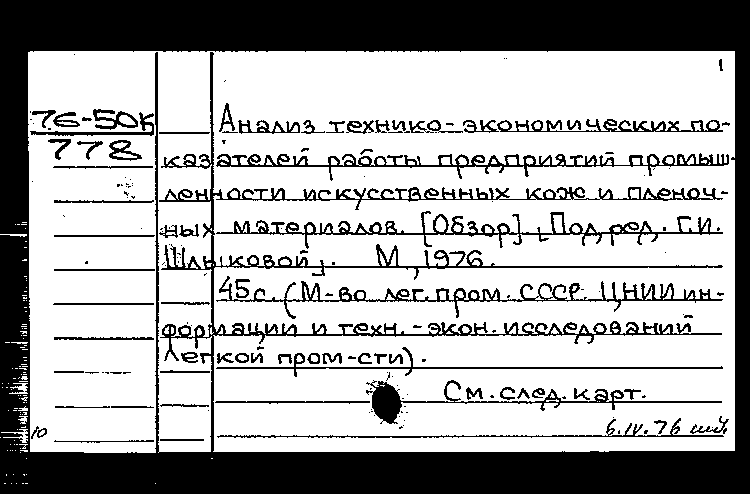 1
76-50к
778
Анализ технико-экономических по-
казателей работы предприятий промыш-
ленности искусственных кож и пленоч-
ных материалов. [Обзор]. [Под ред. Г.И.
Шлыковой]. М., 1976.
45 с. (М-во лег. пром. СССР. ЦНИИ ин-
формации и техн.-экон. исследований
легкой пром-сти).
См. след. карт.
10
6.IV.76